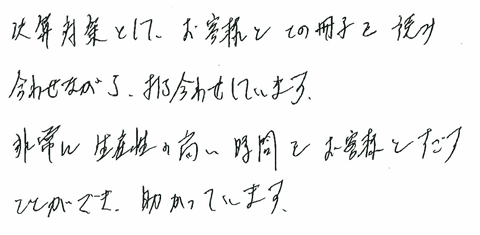 決算対策として、お客様とこの冊子を読み
合わせながら、打合わせしています。
非常に生産性の高い時間をお客様とすごす
ことができ、助かっています。